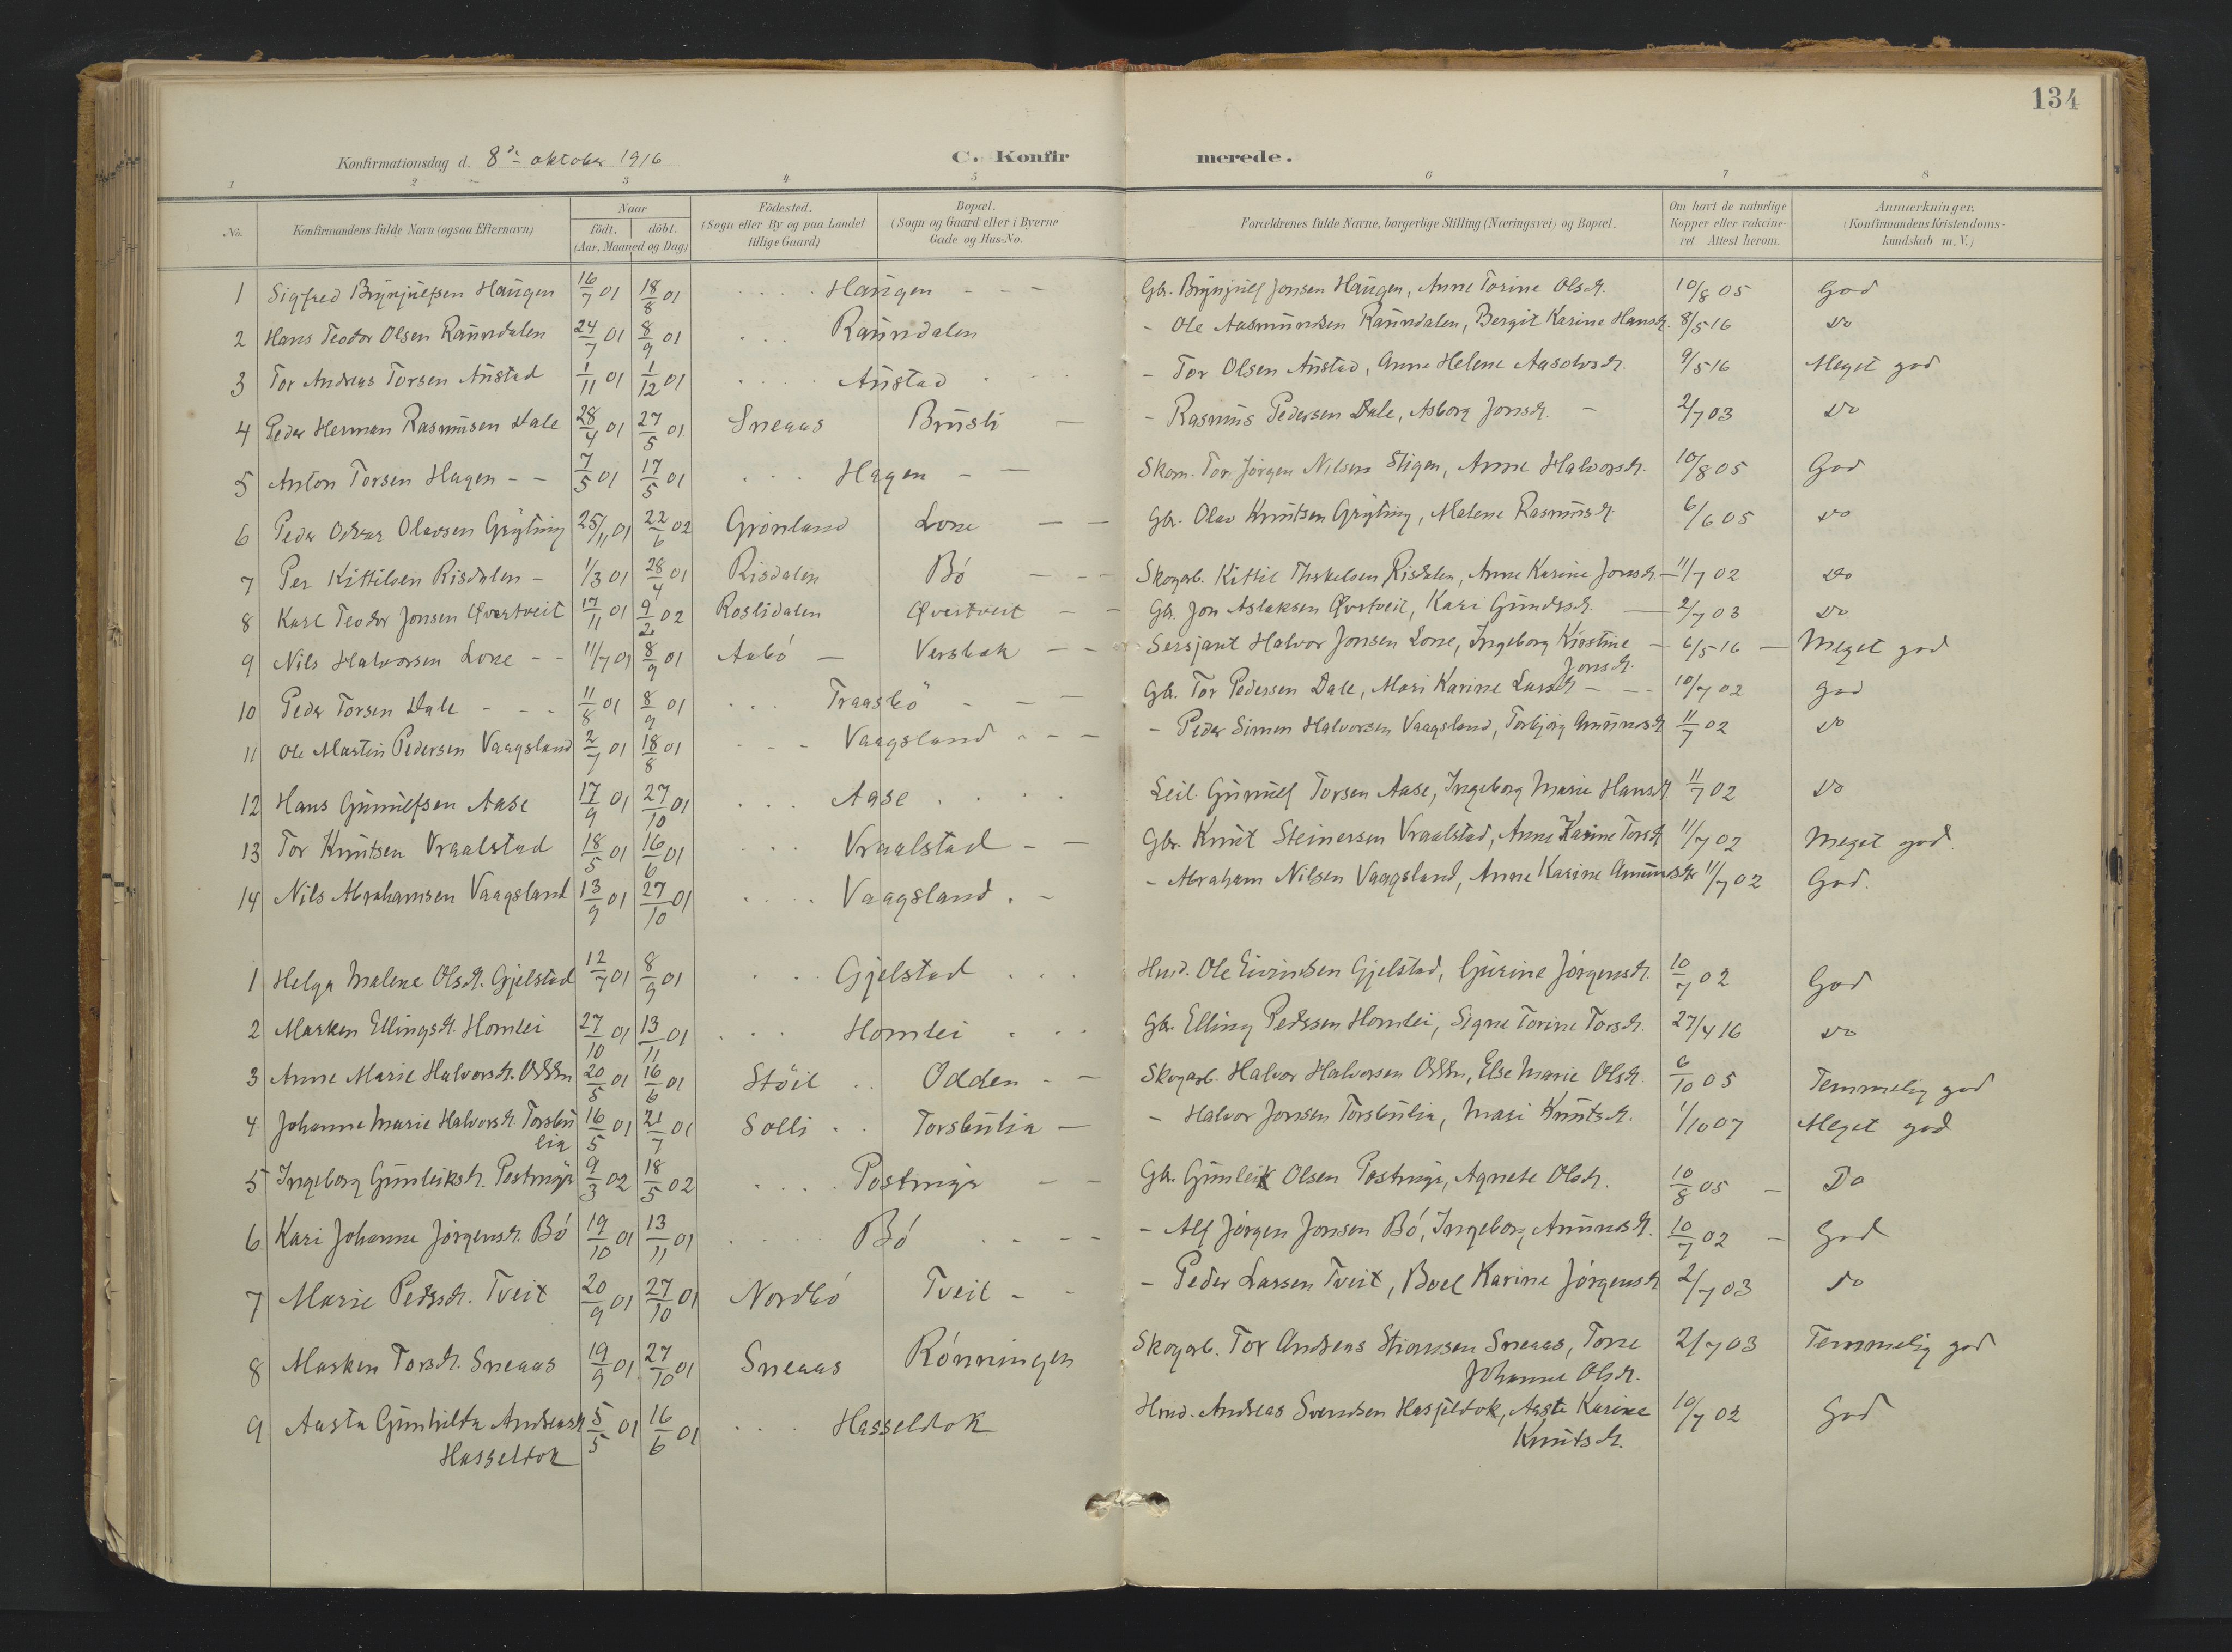 134
Konfirmationsdag d. 8de oktober 1916 C. Konfir merede.
1 2 3 4 5 6 7 8
No. Konfirmandens fulde Navn (ogsaa Efternavn) Naar födt. döbt. (Aar, Maaned og Dag) Födested. (Sogn eller By og paa Landet tillige Gaard) Bopæl. (Sogn og Gaard eller i Byerne Gade og Hus-No. Forældrenes fulde Navne, borgerlige Stilling (Næringsvei) og Bopæl. Om havt de naturlige Kopper eller vakcineret Attest herom. Anmærkninger. (Konfirmandens Kristendomskundskab m. V.)
1 Sigfred Brynjulfsen Haugen 16/7 01 18/8 01 .... Haugen - - - Gbr. Brynjulf Jonsen Haugen, Anne Torine Olsd. 10/8 05 God
2 Hans Teodor Olsen Raundalen 24/7 01 8/9 01 ... Raundalen - Ole Aasmundsen Raundalen, Bergit Karine Hansd. 8/5 16 do
3 Tor Andreas Torsen Austad 1/11 01 1/12 01 .... Austad - Tor Olsen Austad, Anne Helene Aasolvsd. 9/5 16 Meget god
4 Peder Herman Rasmusen Dale 28/4 01 27/5 01 Sneaas Brusli - - Rasmus Pedersen Dale, Asborg Jonsd. - 2/7 03 do
5 Anton Torsen Hagen - - 7/5 01 17/5 01 ... Hagen - - Skom. Tor Jörgen Nilsen Stigen, Anne Halvorsd. 10/8 05 God
6 Peder Odvar Olavsen Gryting 25/11 01 22/6 02 Grönland Lone - - Gbr. Olav Knutsen Gryting, Malene Rasmusd. 6/6 05 do
7 Per Kittilsen Risdalen - 1/3 01 28/4 01 Risdalen Bö - - - Skogarb. Kittil Therkelsen Risdalen, Anne Karine Jonsd. - 11/7 02 do
8 Karl Teodor Jonsen Øvertveit 17/11 01 9/2 02 Roslidalen Øvertveit - - Gb. Jon Aslaksen Øvertveit, Kari Gundersd. - 2/7 03 do
9 Nils Halvorsen Lone - - 11/7 01 8/9 01 Aabö - Versbak - - Sersjant Halvor Jonsen Lone, Ingeborg Kirstine - 6/5 16 - Meget god
Jonsd.
10 Peder Torsen Dale - - - 11/8 01 8/9 01 ... Traasbö - - Gb. Tor Pedersen Dale, Mari Karine Larsd - - - 10/7 02 god
11 Ole Martin Pedersen Vaagsland 2/7 01 18/8 01 - - - Vaagsland - - - - Peder Simon Halvorsen Vaagsland, Torbjörg Amundsd 11/7 02 do
12 Hans Gunulfsen Aase 17/9 01 27/10 01 ... Aase .... Leil. Gunulf Torsen Aase, Ingeborg Marie Hansd. 11/7 02 do
13 Tor Knutsen Vraalstad 18/5 01 16/6 01 ... Vraalstad - - Gbr. Knut Steinersen Vraalstad, Anne Karine Torsd 11/7 02 Meget god.
14 Nils Abrahamsen Vaagsland 13/9 01 27/10 01 .... Vaagsland . - - Abraham Nilsen Vaagsland, Anne Karine Amundsdr 11/7 02 God.
1 Helga Malene Olsd. Gjelstad 12/7 01 8/9 01 .. Gjelstad ... Husd. Ole Eivindsen Gjelstad, Gurine Jörgensd. 10/7 02 God
2 Masken Ellingsd. Homlei 27/10 01 13/11 01 ... Homlei ... Gb. Elling Pedersen Homlei, Signe Torine Torsd. 27/4 16 do
3 Anne Marie Halvorsd. Odden 20/5 01 16/6 01 Stöil .. Odden - - Skogarb. Halvor Halvorsen Odden, Else Marie Olsd. 6/10 05 Temmelig god
4 Johanne Marie Halvorsd. Torsbu 16/5 01 21/7 01 Solli .. Torsbulia - - Halvor Jonsen Torsbulia, Mari Knutsd. 1/10 07 Meget god
lia
5 Ingeborg Gunleiksd. Postmyr 9/3 02 18/5 02 .... Postmyr - - Gb. Gunleik Olsen Postmyr, Agnete Olsd. 10/8 05 - Do
6 Kari Johanne Jörgensd. Bö 19/10 01 13/11 01 .... Bö .. - - - Alf Jörgen Jonsen Bö, Ingeborg Amundsd. 10/7 02 - God
7 Marie Pedersd. Tveit 20/9 01 27/10 01 Nordbö Tveit - - - Peder Larsen Tveit, Boel Karine Jörgensd 2/7 03 do
8 Masken Torsd. Sneaas 19/9 01 27/10 01 Sneaas Rönningen Skogarb. Tor Andreas Stiansen Sneaas, Tone 2/7 03 Temmelig god
Johanne Olsd.
9 Aasta Gunhilda Andreasd 5/5 01 16/6 01 .... Hasseldok Husd. Andreas Svendsen Hasseldok, Aaste Karine 10/7 02 God
Hasseldok Knutsd.